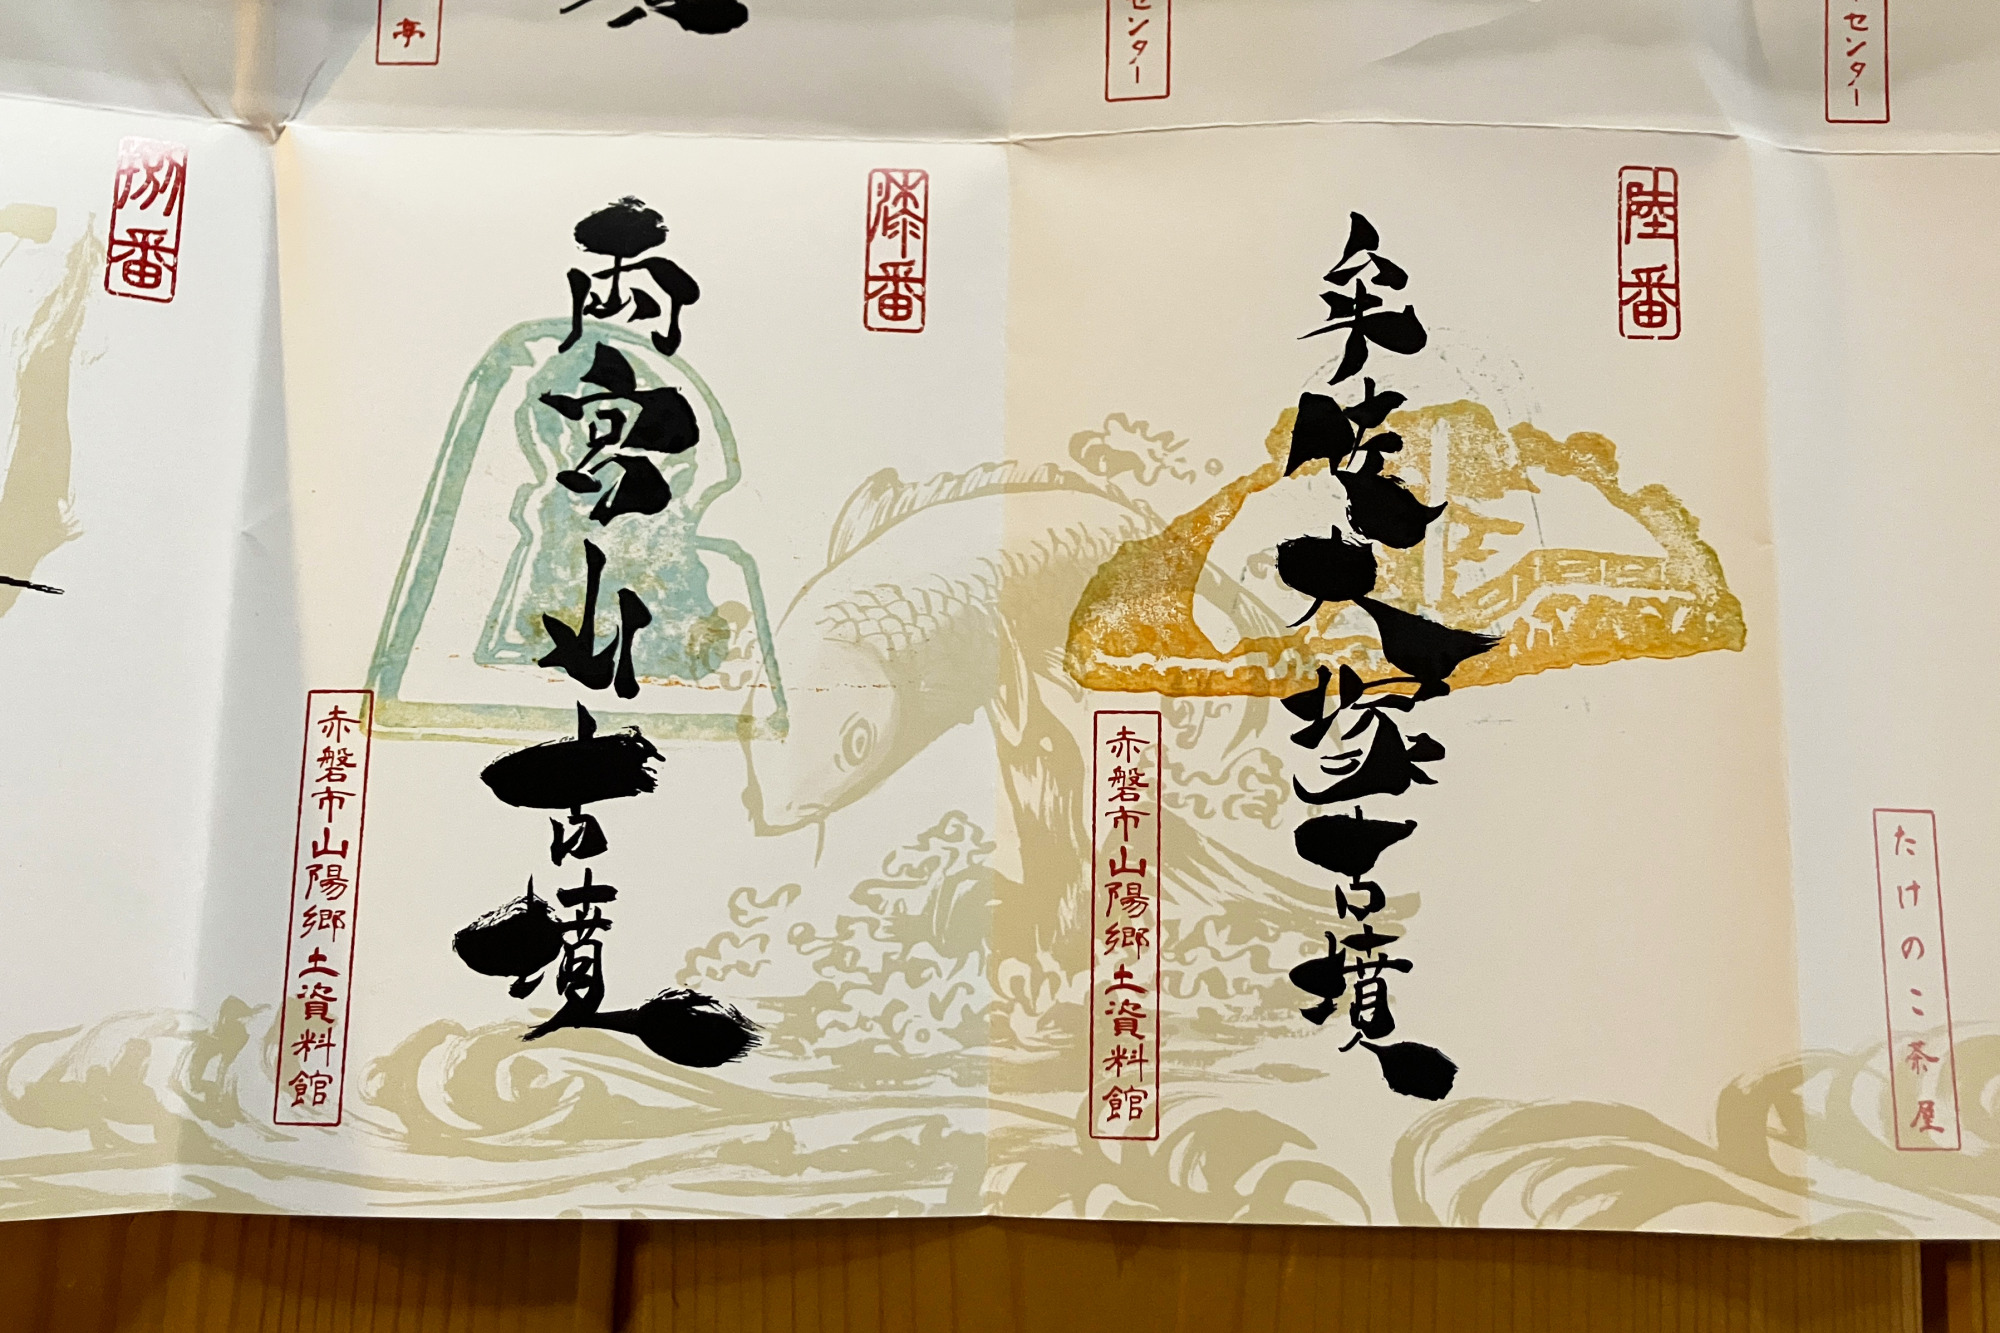 センター
センター
亭
陸番
牟佐大塚古墳
赤磐市山陽郷土資料館
たけのこ茶屋
漆番
両宮山古墳
赤磐市山陽郷土資料館
捌番